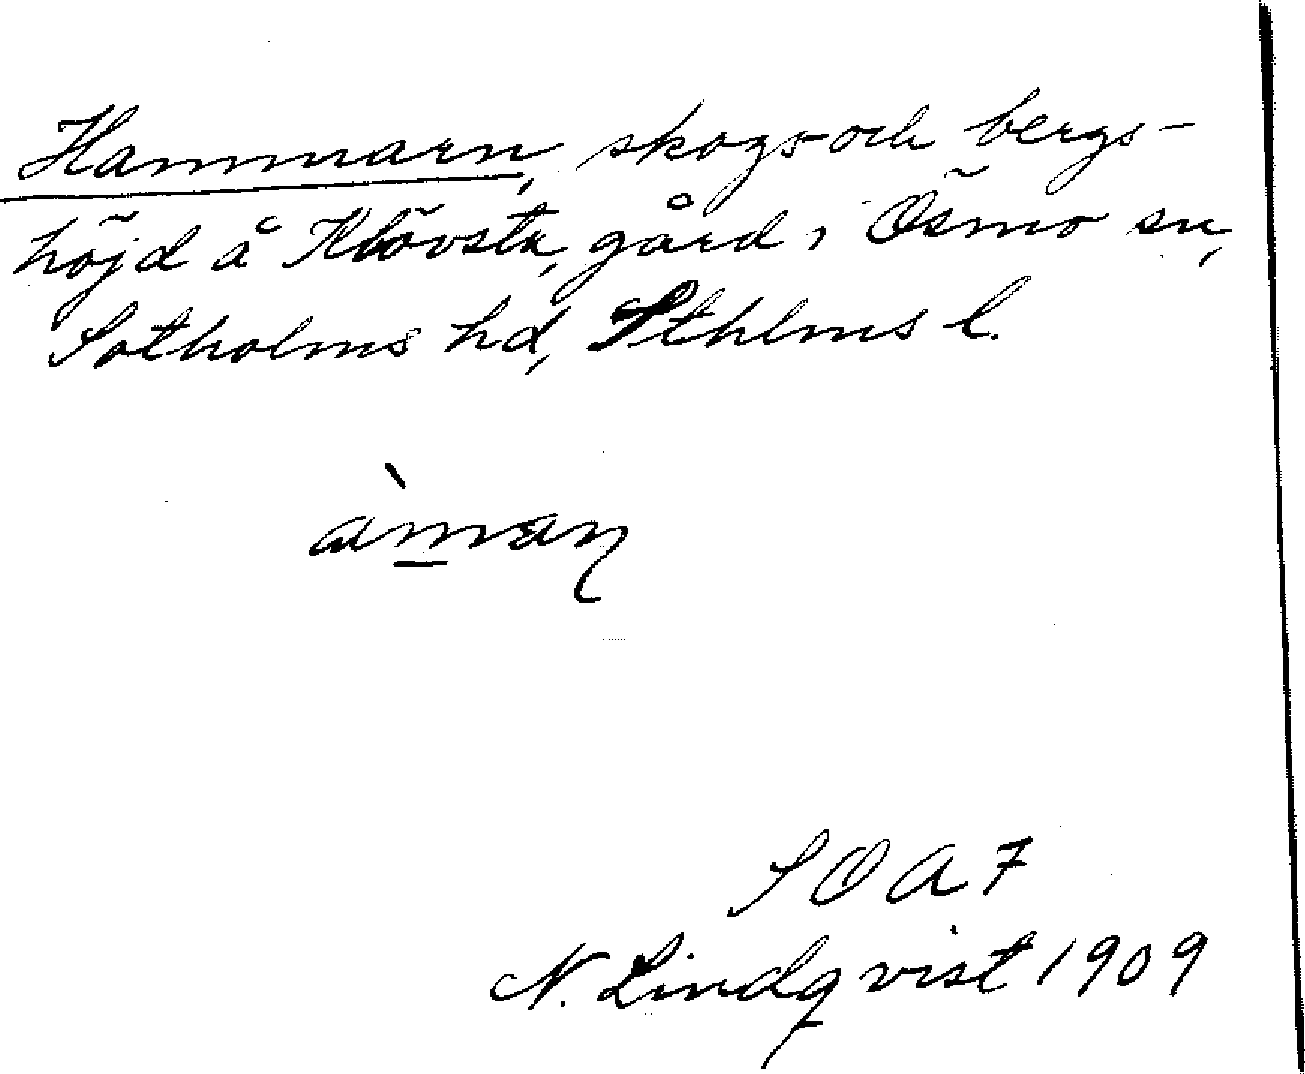 Hammarn, skogs- och bergs-
höjd å Klövsta, gård i Ösmo sn,
Sotholms hd, Sthlms l.
àman
SOA 7
N. Lindqvist 1909